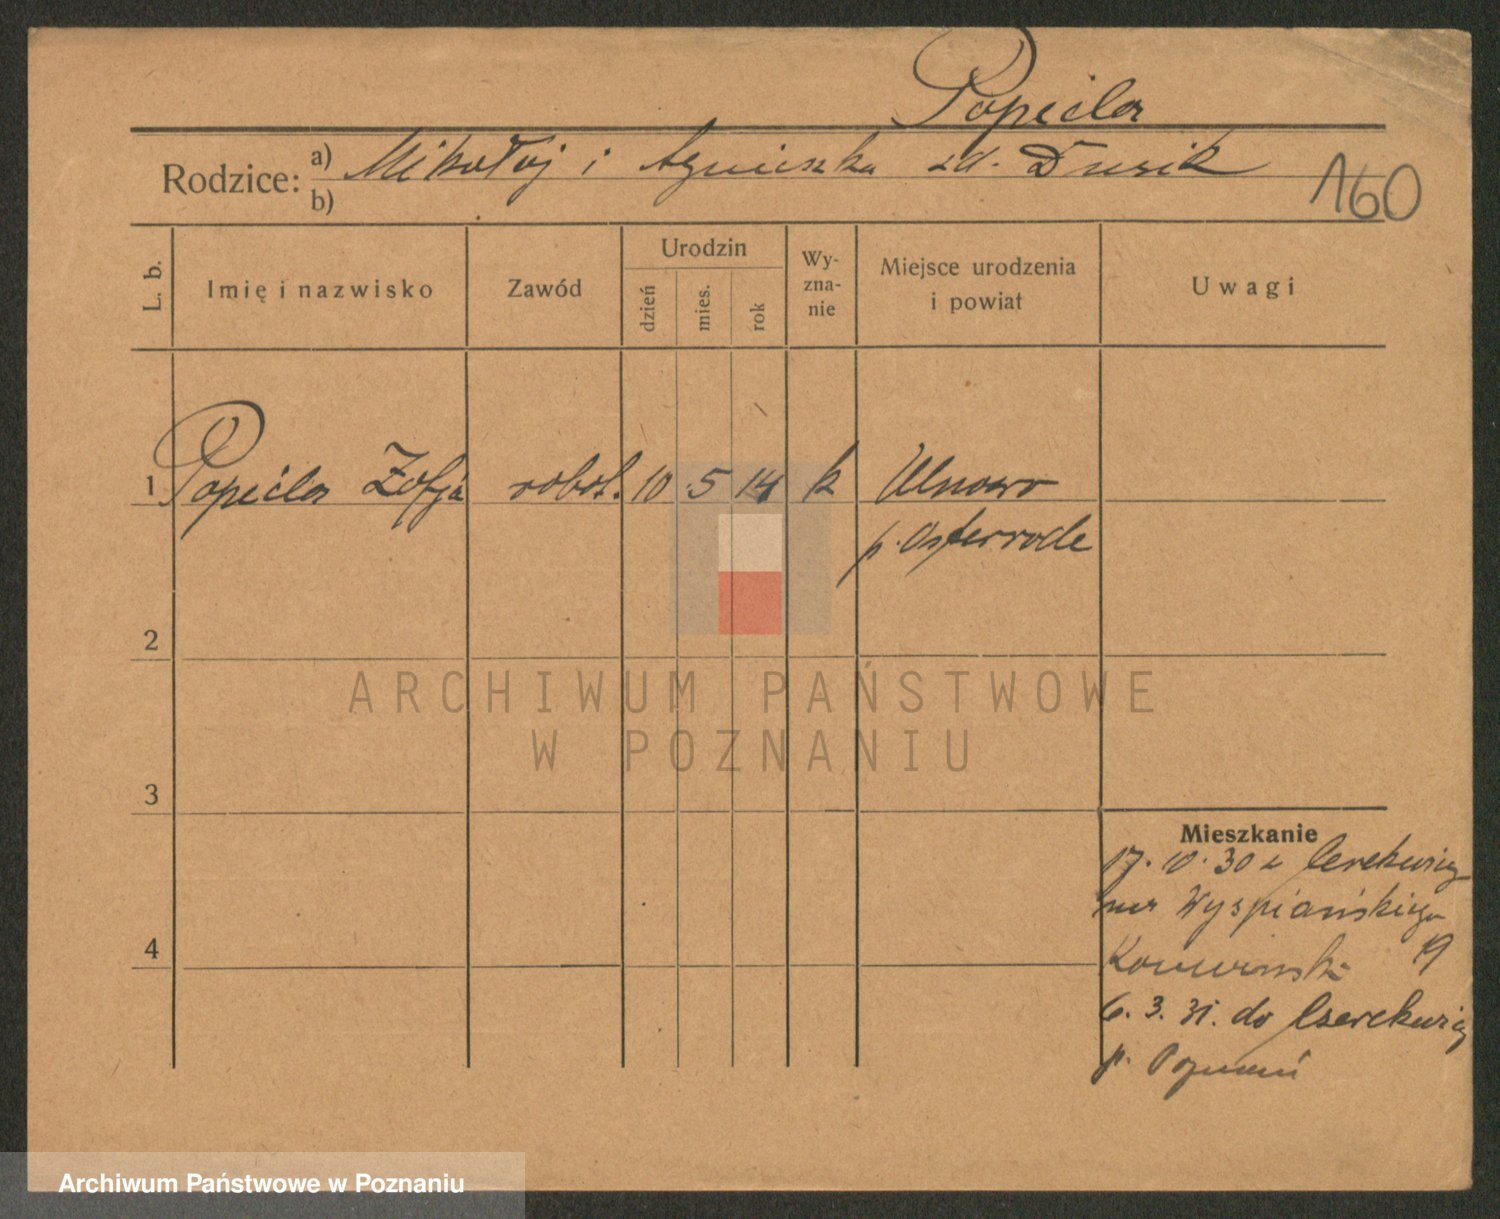 Popiela
Rodzice: a) Mikołaj i Agnieszka zd. Dusik
b)
160
L. b.
Imię i nazwisko
Zawód
Urodzin
dzień
mies.
rok
Wy-
zna-
nie
Miejsce urodzenia
i powiat
Uwagi
1 Popiela Zofja robot. 10 5 14 k Ulnowo
p. Osterrode
2
ARCHIWUM PAŃSTWOWE
W POZNANIU
3
Mieszkanie
17. 10. 30 z Cerekwicy
na Wyspiańskiego
19
4
6. 3. 31. do Cserekwicy
p. Poznań
Archiwum Państwowe w Poznaniu